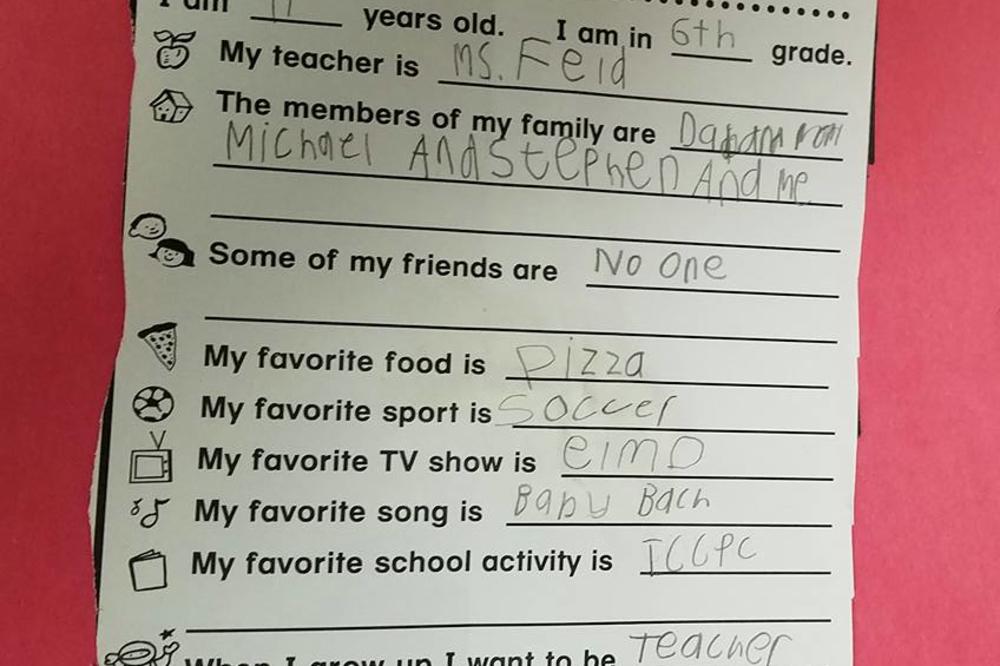 I am 11 years old. I am in 6th grade.
My teacher is Ms. Feid
The members of my family are Dad and Mom
Michael And Stephen And me
Some of my friends are No one
My favorite food is pizza
My favorite sport is Soccer
My favorite TV show is elmo
My favorite song is Baby Bach
My favorite school activity is
When I grow up I want to be Teacher